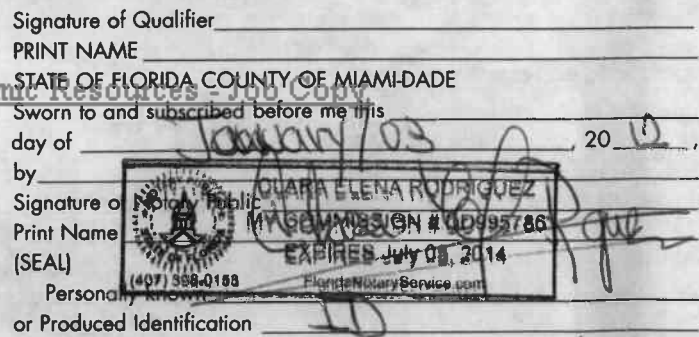 Signature of Qualifier
PRINT NAME
STATE OF FLORIDA COUNTY OF MIAMI-DADE
Resources - Job Copy
Sworn to and subscribed before me this
day of January / 03, 20 12,
by
Signature of Notary Public
Print Name
(SEAL)
CLARA ELENA RODRIGUEZ
MY COMMISSION # DD995786
EXPIRES July 05, 2014
(407) 398-0153 FloridaNotaryService.com
Personally known
or Produced Identification ID